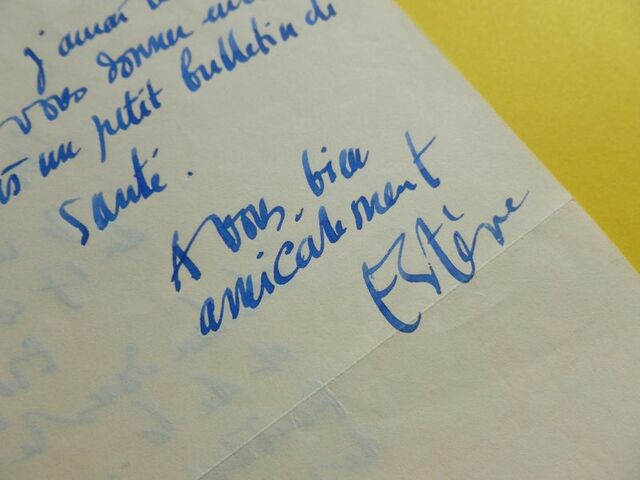 j'aurai
vous donner
un petit bulletin de
santé.
A vous, bien
amicalement
Estève